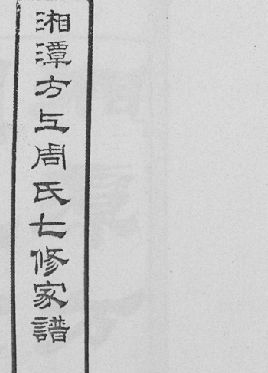 湘潭方上周氏七修家譜